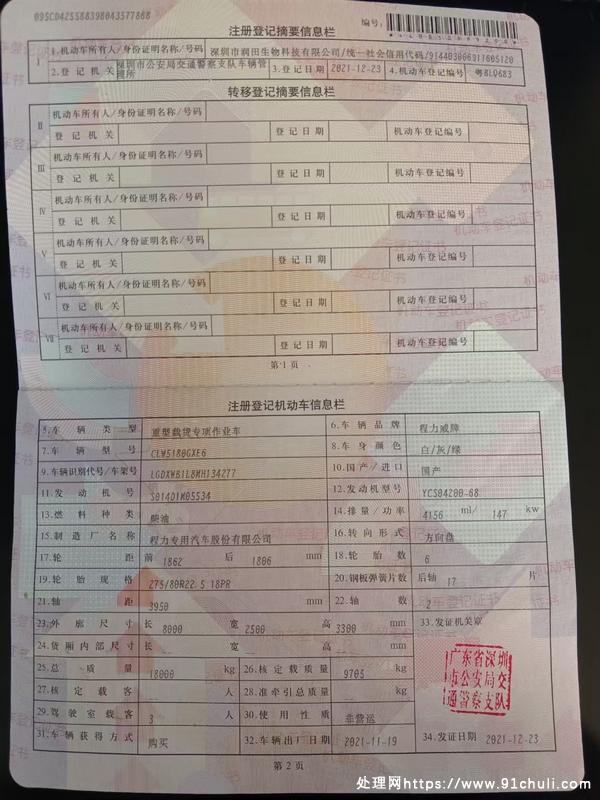 095C042558839B043577868
注册登记摘要信息栏
编号:
I 1.机动车所有人/身份证明名称/号码 深圳市润田生物科技有限公司/统一社会信用代码/
2.登记机关 深圳市公安局交通警察支队车辆管理所 3.登记日期 2021-12-23 4.机动车登记编号 粤BLQ683
转移登记摘要信息栏
II 机动车所有人/身份证明名称/号码
登记机关 登记日期 机动车登记编号
III 机动车所有人/身份证明名称/号码
登记机关 登记日期 机动车登记编号
IV 机动车所有人/身份证明名称/号码
登记机关 登记日期 机动车登记编号
V 机动车所有人/身份证明名称/号码
登记机关 登记日期 机动车登记编号
VI 机动车所有人/身份证明名称/号码
登记机关 登记日期 机动车登记编号
VII 机动车所有人/身份证明名称/号码
登记机关 登记日期 机动车登记编号
第1页
注册登记机动车信息栏
5.车辆类型 重型载货专项作业车 6.车辆品牌 程力威牌
7.车辆型号 CLW5180GXE6 8.车身颜色 白/灰/绿
9.车辆识别代号/车架号 LGDXWB1L8MH134277 10.国产/进口 国产
11.发动机号 S014Q1M05534 12.发动机型号 YCS04200-68
13.燃料种类 柴油 14.排量/功率 4156 ml/ 147 kw
15.制造厂名称 程力专用汽车股份有限公司 16.转向形式 方向盘
17.轮距 前 1862 后 1806 mm 18.轮胎数 6
19.轮胎规格 275/80R22.5 18PR 20.钢板弹簧片数 后轴 17 片
21.轴距 3950 mm 22.轴数 2
23.外廓尺寸 长 8000 宽 2500 高 3300 mm 33.发证机关章
24.货厢内部尺寸 长 -- 宽 -- 高 -- mm
25.总质量 18000 kg 26.核定载质量 9705 kg
27.核定载客 -- 人 28.准牵引总质量 -- kg
29.驾驶室载客 3 人 30.使用性质 非营运
广东省深圳
市公安局交
通警察支队
31.车辆获得方式 购买 32.车辆出厂日期 2021-11-19 34.发证日期 2021-12-23
第2页
处理网https://www.91chuli.com/